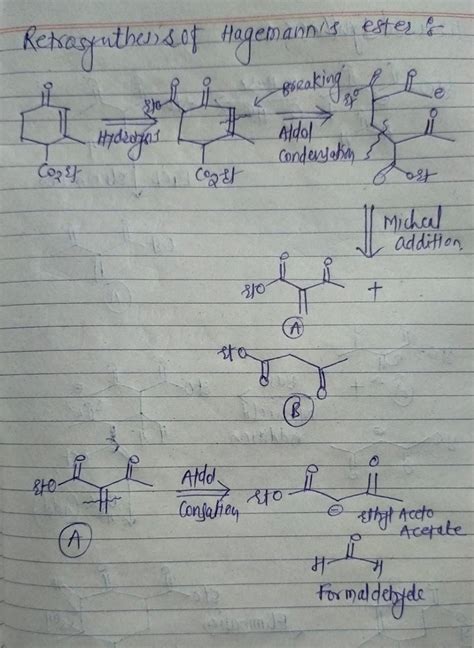 Retrosynthesis of Hagemann's ester :
O
EtO O O
Breaking
O O
EtO
Hydrolysis
Aldol
Condensation
O
CO2Et
CO2Et
O OEt
Micheal
addition
O O
EtO
+
A
EtO
O O
B
O O
EtO
Aldol
Consation
A
O O
EtO
⊖
Ethyl Aceto
Acetate
O
H H
Formaldehyde